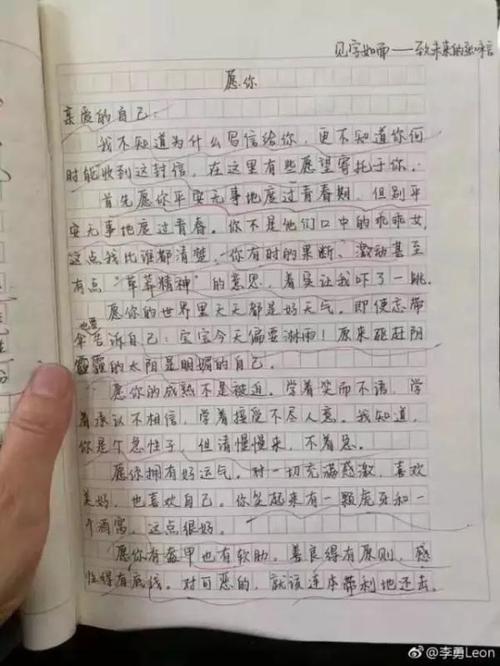 见字如面——致未来的
愿你
亲爱的自己:
我不知道为什么写信给你，更不知道你何
时能收到这封信，在这里有些愿望寄托于你。
首先愿你平安无事地度过青春期，但别平
安无事地度过青春。你不是他们口中的乖乖女，
这点我比谁都清楚，你有时的果断、激动甚至
有点“草莽精神”的意思，着实让我吓了一跳。
愿你的世界里天天都是好天气。即使忘带
伞也要告诉自己：宝宝今天偏要淋雨！原来驱赶阴
霾的太阳是明媚的自己。
愿你的成熟不是被迫。学着笑而不语，学
着承认不相信，学着接受不尽人意。我知道，
你是个急性子，但请慢慢来，不着急。
愿你拥有好运气。对一切充满感激，喜欢
美好，也喜欢自己。你笑起来有一颗虎牙和一
个酒窝，这点很好。
愿你有盔甲也有软肋。善良得有原则，感
性得有底线。对可恶的，就该连本带利地还击。
@李勇Leon